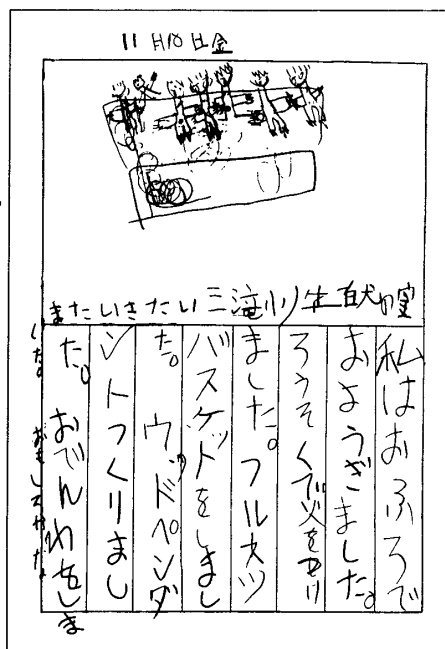 11月10日金
またいきたい三滝小
私はおふろで
おようぎました。
ろうそくで火をやり
ました。フルーツ
バスケットをしまし
た。ウッドペンダ
ントつくりまし
た。おでんわをしま
した。